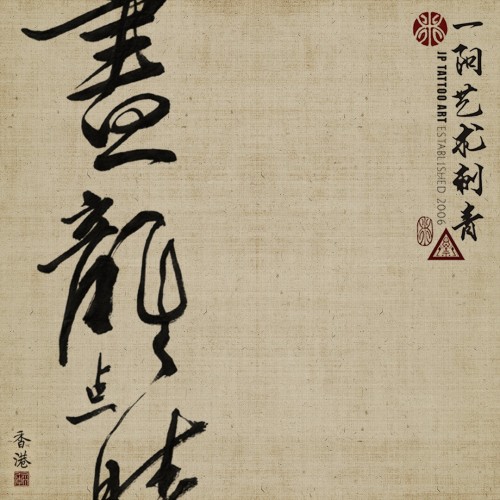 畫龍点睛
香港
一阳艺术刺青
JP TATTOO ART ESTABLISHED 2006